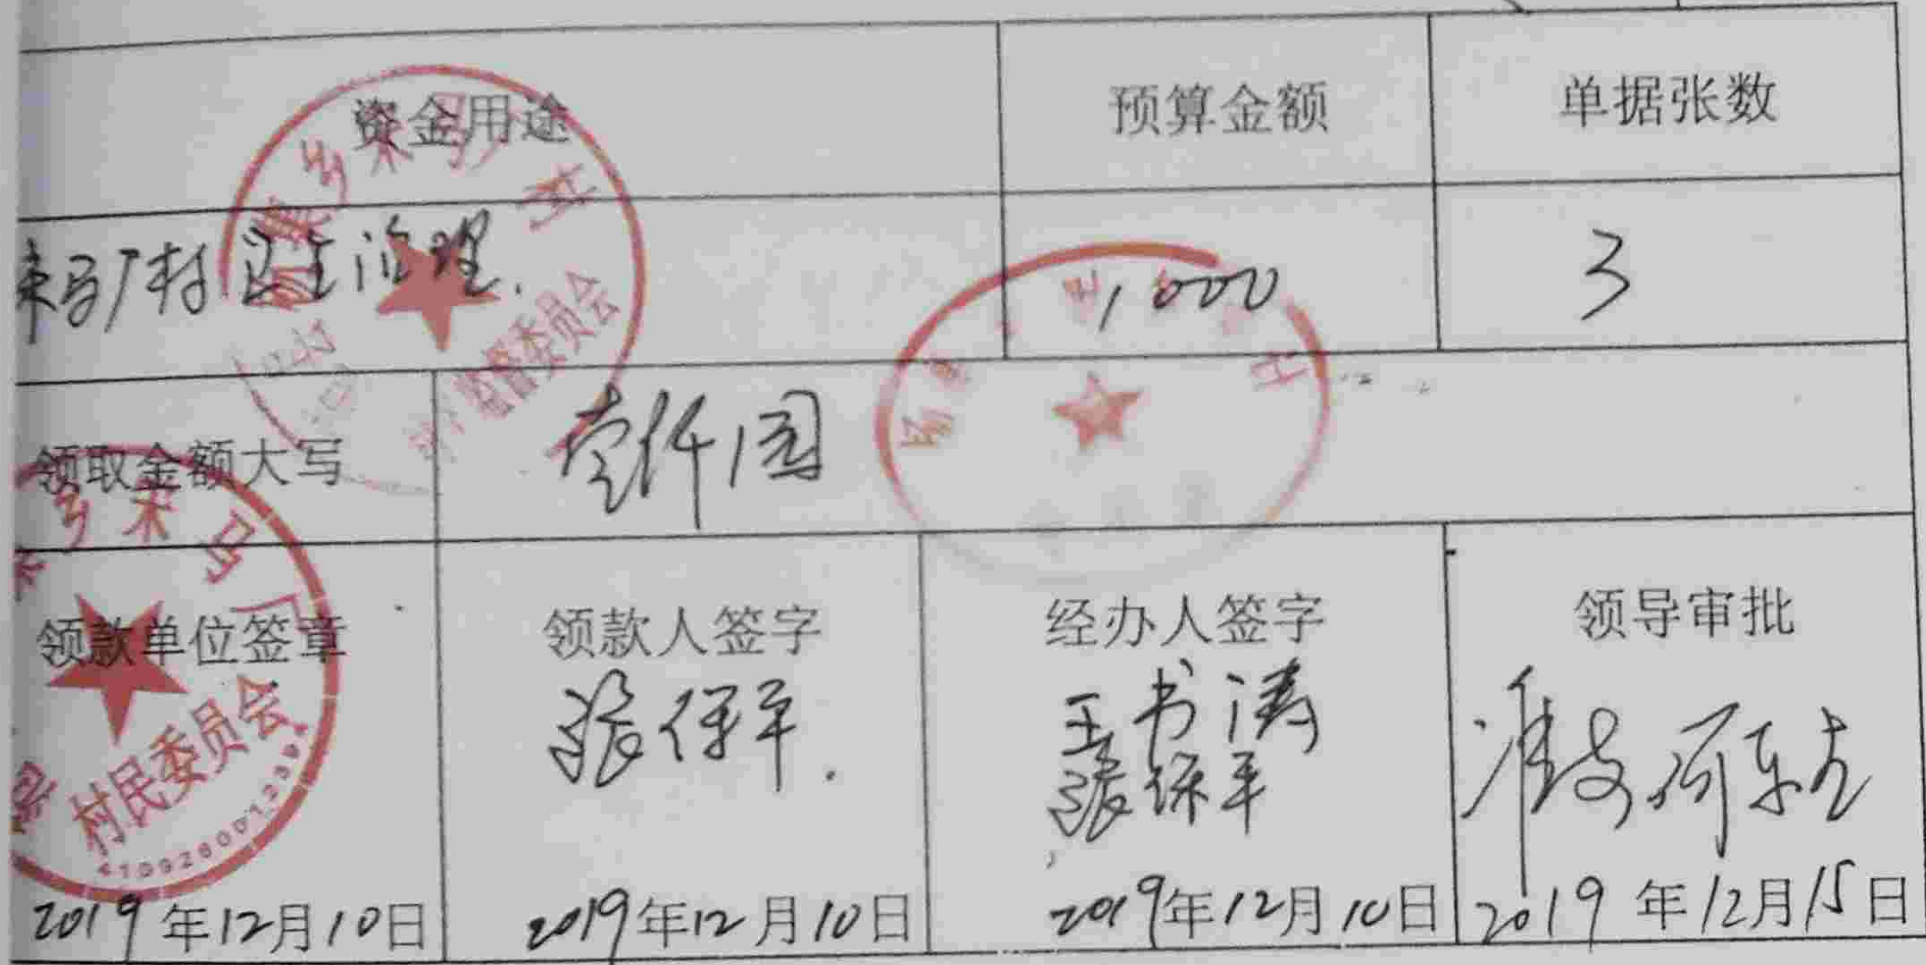 资金用途 预算金额 单据张数
宋马厂村卫生治理. 1,000 3
领取金额大写 壹仟圆
领款单位签章 领款人签字 经办人签字 领导审批
张保平. 王书涛 准支
张保平
村民委员会
监督委员会
2019年12月10日 2019年12月10日 2019年12月10日 2019年12月15日